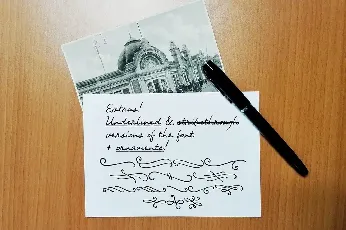 Extras!
Underlined & strikethrough
versions of the font
+ ornaments!